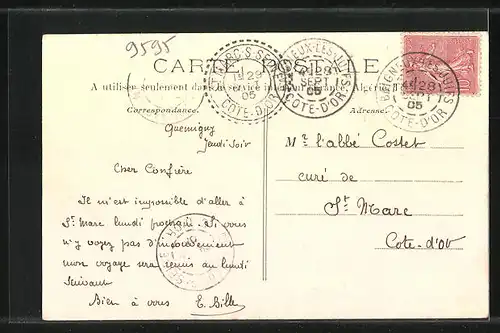 9595
CARTE POSTALE
A utiliser seulement dans le service intérieur (France, Algérie
Correspondance. Adresse
BAIGNEUX-LES-JUIFS
28
SEPT
05
COTE-D'OR
BAIGNEUX-LES-JUIFS
28
05
COTE-D'OR
28
05
COTE-D'OR
Quemigny
Jeudi soir
Cher Confrère
Il m'est impossible d'aller à
St Marc lundi prochain. Si vous
n'y voyez pas d'inconvénient
mon voyage sera remis au lundi
suivant
Bien à vous E. Bille
Mr l'abbé Costet
curé de
St Marc
Cote-d'Or